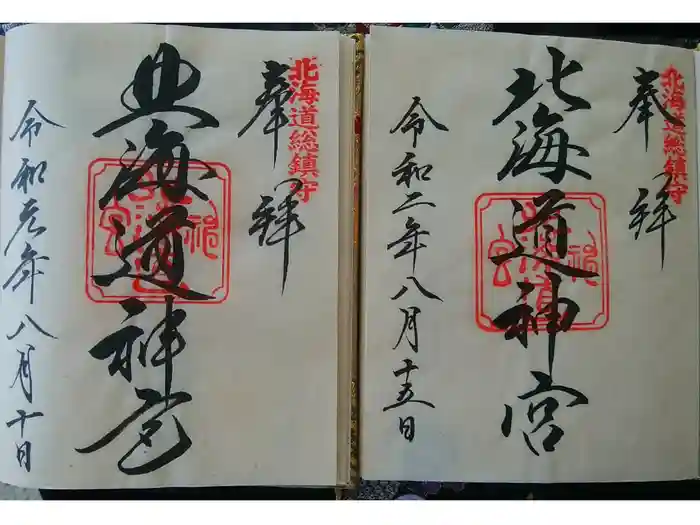 北海道総鎮守
奉拝
北海道神宮
令和二年八月十五日
北海道総鎮守
奉拝
北海道神宮
令和元年八月十日